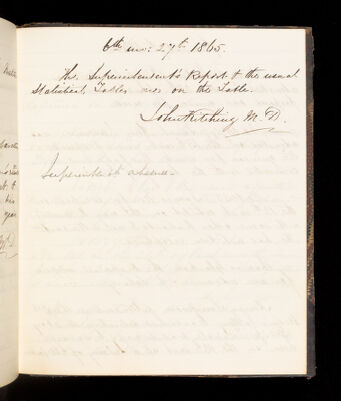 6th mo: 27th 1865.
The Superintendent's Report & the usual
Statistical Tables are on the Table.
John Kitching M.D.
Superintendt absence.